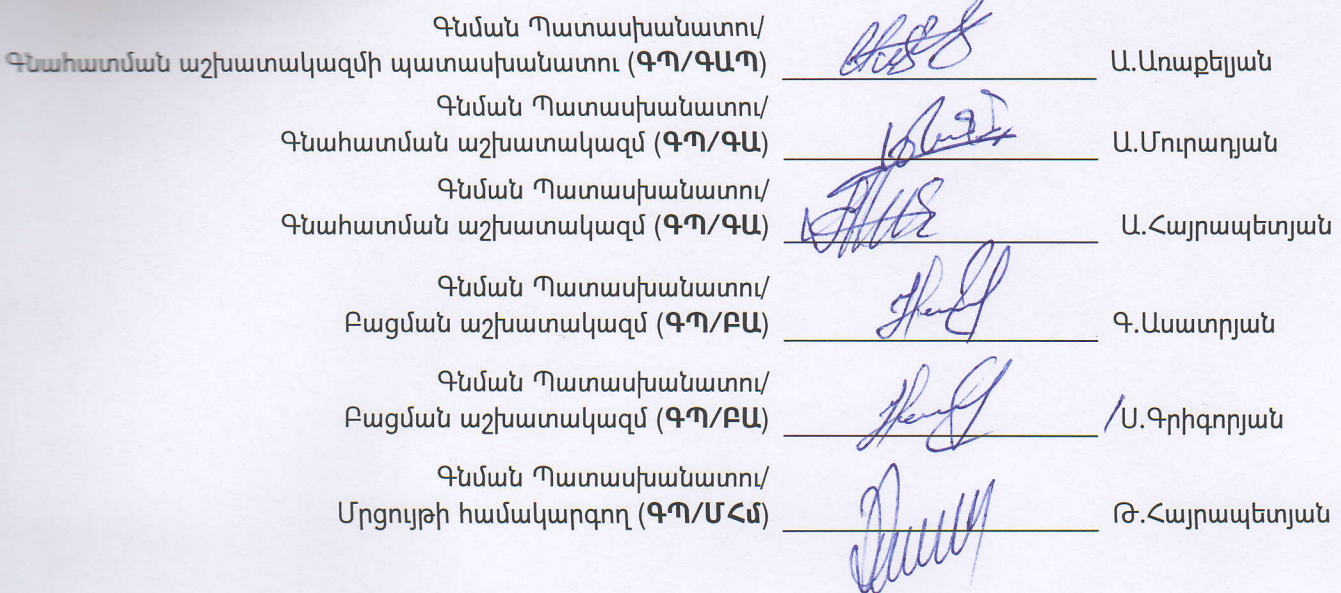 Գնման Պատասխանատու/
Գնահատման աշխատակազմի պատասխանատու (ԳՊ/ԳԱՊ) Ա.Առաքելյան
Գնման Պատասխանատու/
Գնահատման աշխատակազմ (ԳՊ/ԳԱ) Ա.Մուրադյան
Գնման Պատասխանատու/
Գնահատման աշխատակազմ (ԳՊ/ԳԱ) Ա.Հայրապետյան
Գնման Պատասխանատու/
Բացման աշխատակազմ (ԳՊ/ԲԱ) Գ.Ասատրյան
Գնման Պատասխանատու/
Բացման աշխատակազմ (ԳՊ/ԲԱ) /Ս.Գրիգորյան
Գնման Պատասխանատու/
Մրցույթի համակարգող (ԳՊ/ՄՀմ) Թ.Հայրապետյան